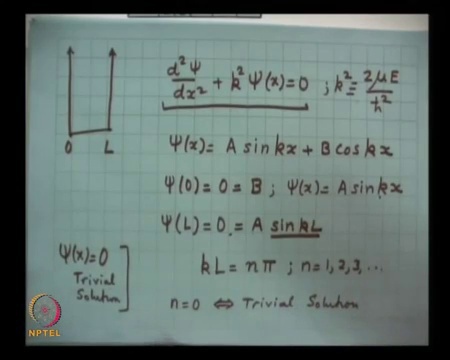 d²Ψ/dx² + k²Ψ(x)=0 ; k² = 2μE/ħ²
0 L
Ψ(x)= A sin kx + B cos kx
Ψ(0)=0=B ; Ψ(x)= A sin kx
Ψ(L)=0 = A sin kL
Ψ(x)=0
Trivial
Solution
kL = nπ ; n=1,2,3,...
n=0 ⇔ Trivial Solution
NPTEL